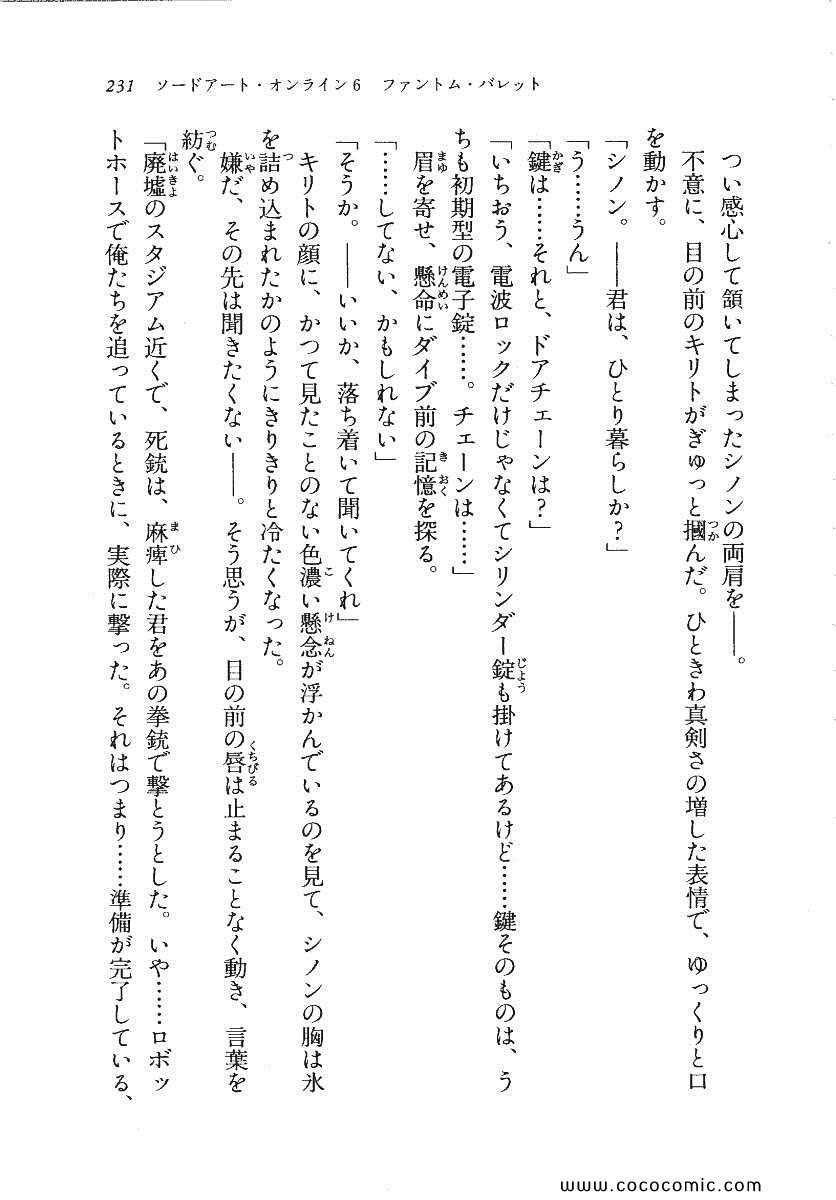 231　ソードアート・オンライン6　ファントム・バレット
つい感心して頷いてしまったシノンの両肩を——。
不意に、目の前のキリトがぎゅっと摑んだ。ひときわ真剣さの増した表情で、ゆっくりと口
を動かす。
「シノン。——君は、ひとり暮らしか？」
「う……うん」
「鍵は……それと、ドアチェーンは？」
「いちおう、電波ロックだけじゃなくてシリンダー錠も掛けてあるけど……鍵そのものは、う
ちも初期型の電子錠……。チェーンは……」
眉を寄せ、懸命にダイブ前の記憶を探る。
「……してない、かもしれない」
「そうか。——いいか、落ち着いて聞いてくれ」
キリトの顔に、かつて見たことのない色濃い懸念が浮かんでいるのを見て、シノンの胸は氷
を詰め込まれたかのようにきりきりと冷たくなった。
嫌だ、その先は聞きたくない——。そう思うが、目の前の唇は止まることなく動き、言葉を
紡ぐ。
「廃墟のスタジアム近くで、死銃は、麻痺した君をあの拳銃で撃とうとした。いや……ロボッ
トホースで俺たちを追っているときに、実際に撃った。それはつまり……準備が完了している、
www.cococomic.com